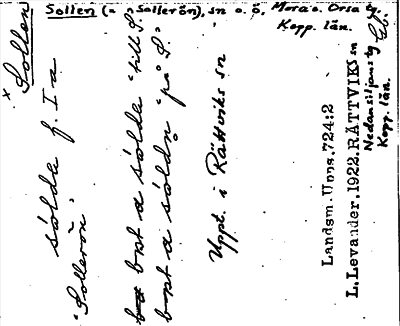 Sollen (= "Sollerön), sn o. ö, Mora o. Orsa tg,
Kopp. län.
x Sollen
sólda f. I a
"Sollerön"
bot a sólda "till S."
bot a sóldn "på S."
Uppt. i Rättviks sn
Landsm. Upps. 724:2
L. Levander. 1922. RÄTTVIKS sn
Nedansiljans tg
Kopp. län.